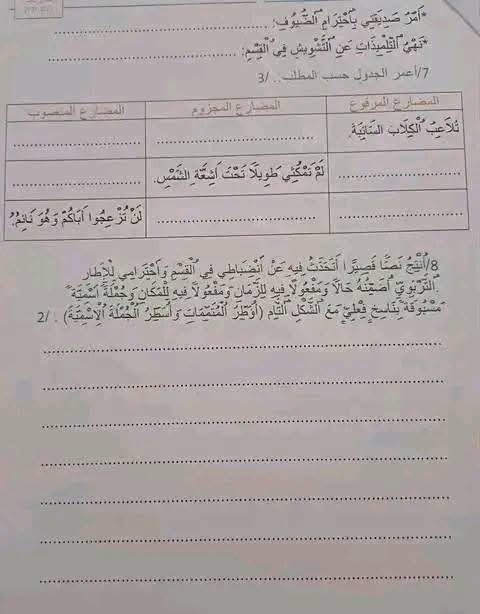 *أَمْرُ صَدِيقَتِي بِٱحْتِرَامِ ٱلضُّيُوفِ: ..............................
*نَهْيُ ٱلتِّلْمِيذَاتِ عَنِ ٱلتَّشْوِيشِ فِي ٱلْقِسْمِ: ..............................
7/أعمر الجدول حسب المطلب.. /3
المضارع المرفوع المضارع المجزوم المضارع المنصوب
تُلَاعِبُ ٱلْكِلَابَ السَّائِبَةَ. .............................. ..............................
.............................. لَمْ تَمْكُثِي طَوِيلًا تَحْتَ أَشِعَّةِ الشَّمْسِ. ..............................
.............................. .............................. لَنْ تُزْعِجُوا أَبَاكُمْ وَهُوَ نَائِمٌ.
8/أُنْتِجُ نَصًّا قَصِيرًا أَتَحَدَّثُ فِيهِ عَنْ ٱنْضِبَاطِي فِي ٱلْقِسْمِ وَٱحْتِرَامِي لِلْإِطَارِ
ٱلتَّرْبَوِيِّ أُضَمِّنُهُ حَالًا وَمَفْعُولًا فِيهِ لِلزَّمَانِ وَمَفْعُولًا فِيهِ لِلْمَكَانِ وَجُمْلَةً ٱسْمِيَّةً
مَسْبُوقَةً بِنَاسِخٍ فِعْلِيٍّ مَعَ ٱلشَّكْلِ ٱلتَّامِّ (أُؤَطِّرُ ٱلْمُتَمِّمَاتِ وَأُسَطِّرُ ٱلْجُمْلَةَ ٱلْاِسْمِيَّةَ) . /2